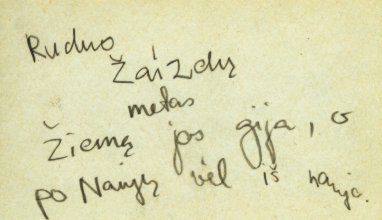 Ruduo
Žaizdų
metas
Žiemą jos gija, o
po Naujų vėl iš naujo.